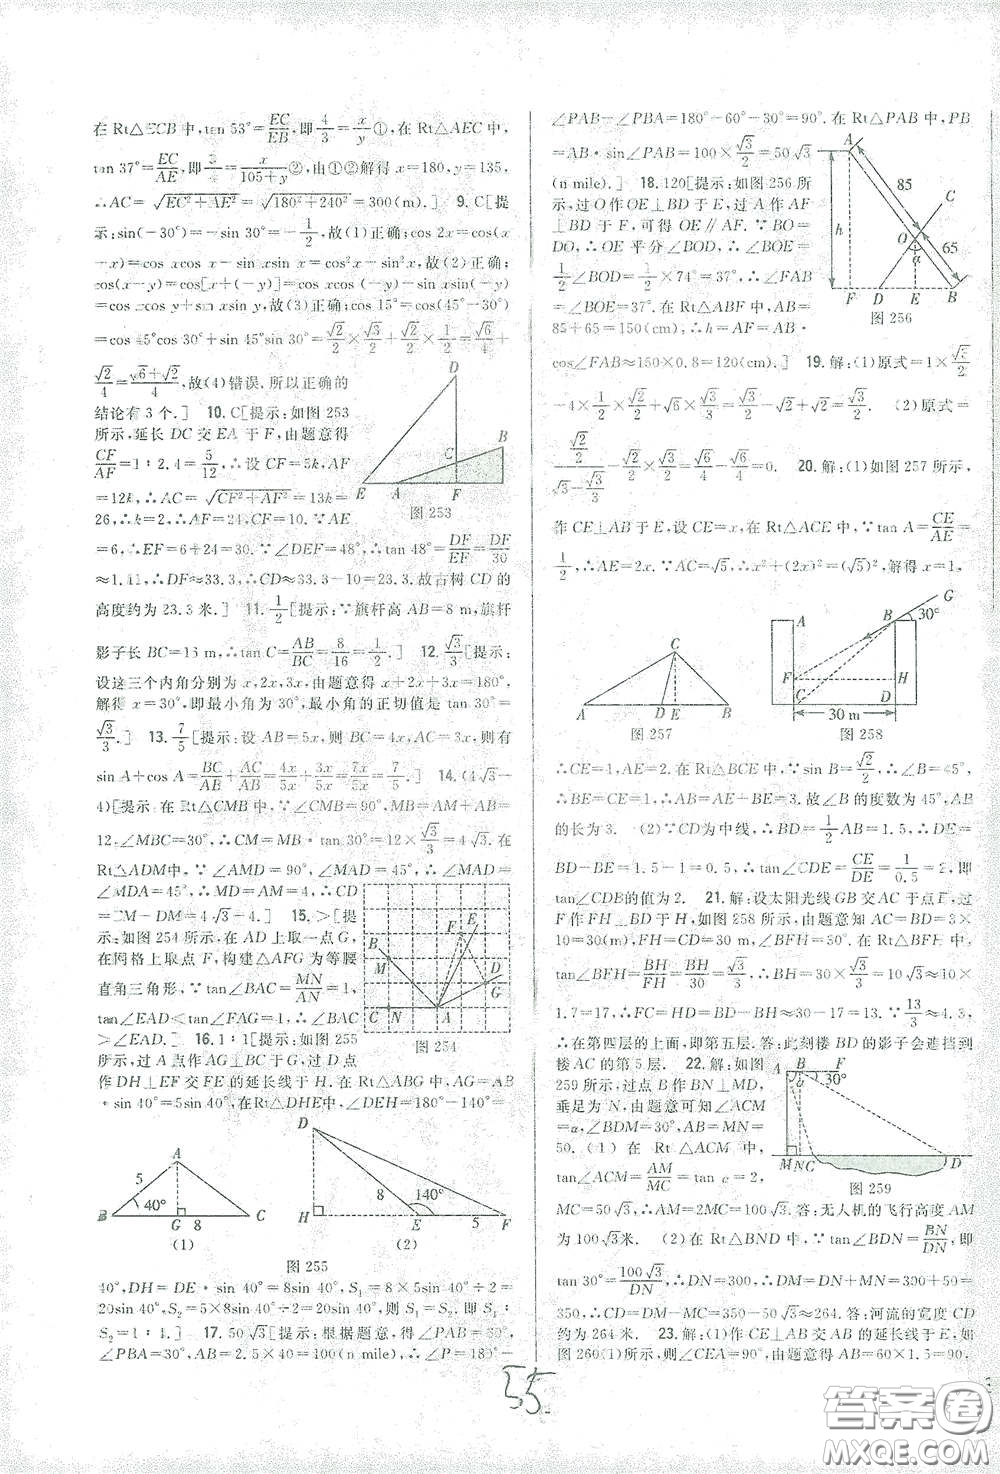 在 Rt△ECB 中,tan 53°=EC/EB,即4/3=x/y①,在 Rt△AEC 中,
tan 37°=EC/AE,即3/4=x/(105+y)②,由①②解得 x=180,y=135,
∴AC=√(EC²+AE²)=√(180²+240²)=300(m).] 9. C[提
示:sin(-30°)=-sin 30°=-1/2,故(1)正确;cos 2x=cos(x
+x)=cos xcos x-sin xsin x=cos²x-sin²x,故(2)正确;
cos(x-y)=cos[x+(-y)]=cos xcos(-y)-sin xsin(-y)=
cos xcos y+sin xsin y,故(3)正确;cos 15°=cos(45°-30°)
=cos 45°cos 30°+sin 45°sin 30°=√2/2×√3/2+√2/2×1/2=√6/4+
√2/4=(√6+√2)/4,故(4)错误. 所以正确的
结论有 3 个.] 10. C[提示:如图 253
所示,延长 DC 交 EA 于 F,由题意得
CF/AF=1∶2.4=5/12,∴设 CF=5k,AF=
12k,∴AC=√(CF²+AF²)=13k=
26,∴k=2,∴AF=24,CF=10.∵AE
=6,∴EF=6+24=30.∵∠DEF=48°,∴tan 48°=DF/EF=DF/30
≈1.11,∴DF≈33.3,∴CD≈33.3-10=23.3.故古树 CD 的
高度约为 23.3 米.] 11. 1/2[提示:∵旗杆高 AB=8 m,旗杆
影子长 BC=16 m,∴tan C=AB/BC=8/16=1/2.] 12. √3/3[提示:
设这三个内角分别为 x,2x,3x,由题意得 x+2x+3x=180°,
解得 x=30°,即最小角为 30°,∴最小角的正切值是 tan 30°=
√3/3.] 13. 7/5[提示:设 AB=5x,则 BC=4x,AC=3x,则有
sin A+cos A=BC/AB+AC/AB=4x/5x+3x/5x=7x/5x=7/5.] 14. (4√3-
4)[提示:在 Rt△CMB 中,∵∠CMB=90°,MB=AM+AB=
12,∠MBC=30°,∴CM=MB·tan 30°=12×√3/3=4√3.在
Rt△ADM中,∵∠AMD=90°,∠MAD=45°,∴∠MAD=
∠MDA=45°,∴MD=AM=4,∴CD
=CM-DM=4√3-4.] 15. >[提
示:如图 254 所示,在 AD 上取一点 G,
在网格上取点 F,构建△AFG 为等腰
直角三角形,∵tan∠BAC=MN/AN=1,
tan∠EAD<tan∠FAG=1,∴∠BAC
>∠EAD.] 16. 1∶1[提示:如图 255
所示,过 A 点作 AG⊥BC 于 G,过 D 点
作 DH⊥EF 交 FE 的延长线于 H.在 Rt△ABG 中,AG=AB
·sin 40°=5sin 40°,在Rt△DHE中,∠DEH=180°-140°=
D
C
B
E
A
F
图 253
B
M
C
N
A
F
E
D
G
图 254
A
5
40°
B
G
8
C
(1)
D
8
140°
H
E
5
F
(2)
图 255
40°,DH=DE·sin 40°=8sin 40°,S₁=8×5sin 40°÷2=
20sin 40°,S₂=5×8sin 40°÷2=20sin 40°,则 S₁=S₂,即 S₁∶
S₂=1∶1.] 17. 50√3[提示:根据题意,得∠PAB=60°,
∠PBA=30°,AB=2.5×40=100(n mile),∴∠P=180°-
∠PAB-∠PBA=180°-60°-30°=90°.在 Rt△PAB 中,PB
=AB·sin∠PAB=100×√3/2=50√3
(n mile).] 18. 120[提示:如图 256 所
示,过 O 作 OE⊥BD 于 E,过 A 作 AF
⊥BD 于 F,可得 OE∥AF.∵BO=
DO,∴OE 平分∠BOD,∴∠BOE=
1/2∠BOD=1/2×74°=37°,∴∠FAB
=∠BOE=37°.在 Rt△ABF 中,AB=
85+65=150(cm),∴h=AF=AB·
cos∠FAB≈150×0.8=120(cm).] 19. 解:(1)原式=1×√3/2
-4×1/2×√2/2+√6×√3/3=√3/2-√2+√2=√3/2. (2)原式=
(√2/2)/(√3-√3/2)=√2/2×2/√3-√6/4=√6/4 20. 解:(1)如图 257 所示,
作 CE⊥AB 于 E,设 CE=x,在 Rt△ACE 中,∵tan A=CE/AE=
1/2,∴AE=2x.∵AC=√5,∴x²+(2x)²=(√5)²,解得 x=1,
A
85
C
O
α
65
h
F
D
E
B
图 256
C
A
D
E
B
图 257
G
A
B
30°
F
H
C
D
30 m
图 258
∴CE=1,AE=2.在 Rt△BCE 中,∵sin B=√2/2,∴∠B=45°,
∴BE=CE=1,∴AB=AE+BE=3.故∠B 的度数为 45°,AB
的长为 3. (2)∵CD为中线,∴BD=1/2AB=1.5,∴DE=
BD-BE=1.5-1=0.5,∴tan∠CDE=CE/DE=1/0.5=2.即
tan∠CDB的值为 2. 21. 解:设太阳光线 GB 交 AC 于点 F,过
F 作 FH⊥BD 于 H,如图 258 所示,由题意知,AC=BD=3×
10=30(m),FH=CD=30 m,∠BFH=30°.在 Rt△BFH 中,
tan∠BFH=BH/FH=BH/30=√3/3,∴BH=30×√3/3=10√3≈10×
1.7=17,∴FC=HD=BD-BH≈30-17=13.∵13/3≈4.3,
∴在第四层的上面,即第五层.答:此刻楼 BD 的影子会遮挡到
楼 AC 的第 5 层. 22. 解:如图
259 所示,过点 B 作 BN⊥MD,
垂足为 N,由题意可知∠ACM
=α,∠BDM=30°,AB=MN=
50.(1)在 Rt△ACM 中,
tan∠ACM=AM/MC=tan α=2,
MC=50√3,∴AM=2MC=100√3.答:无人机的飞行高度 AM
为 100√3 米. (2)在 Rt△BND 中,∵tan∠BDN=BN/DN,即
tan 30°=100√3/DN,∴DN=300,∴DM=DN+MN=300+50=
350,∴CD=DM-MC=350-50√3≈264.答:河流的宽度 CD
约为 264 米. 23. 解:(1)作 CE⊥AB 交 AB 的延长线于 E,如
图 260(1)所示,则∠CEA=90°,由题意得 AB=60×1.5=90,
A
B
F
α
30°
M
N
C
D
图 259
55
答案圈
MXQE.COM